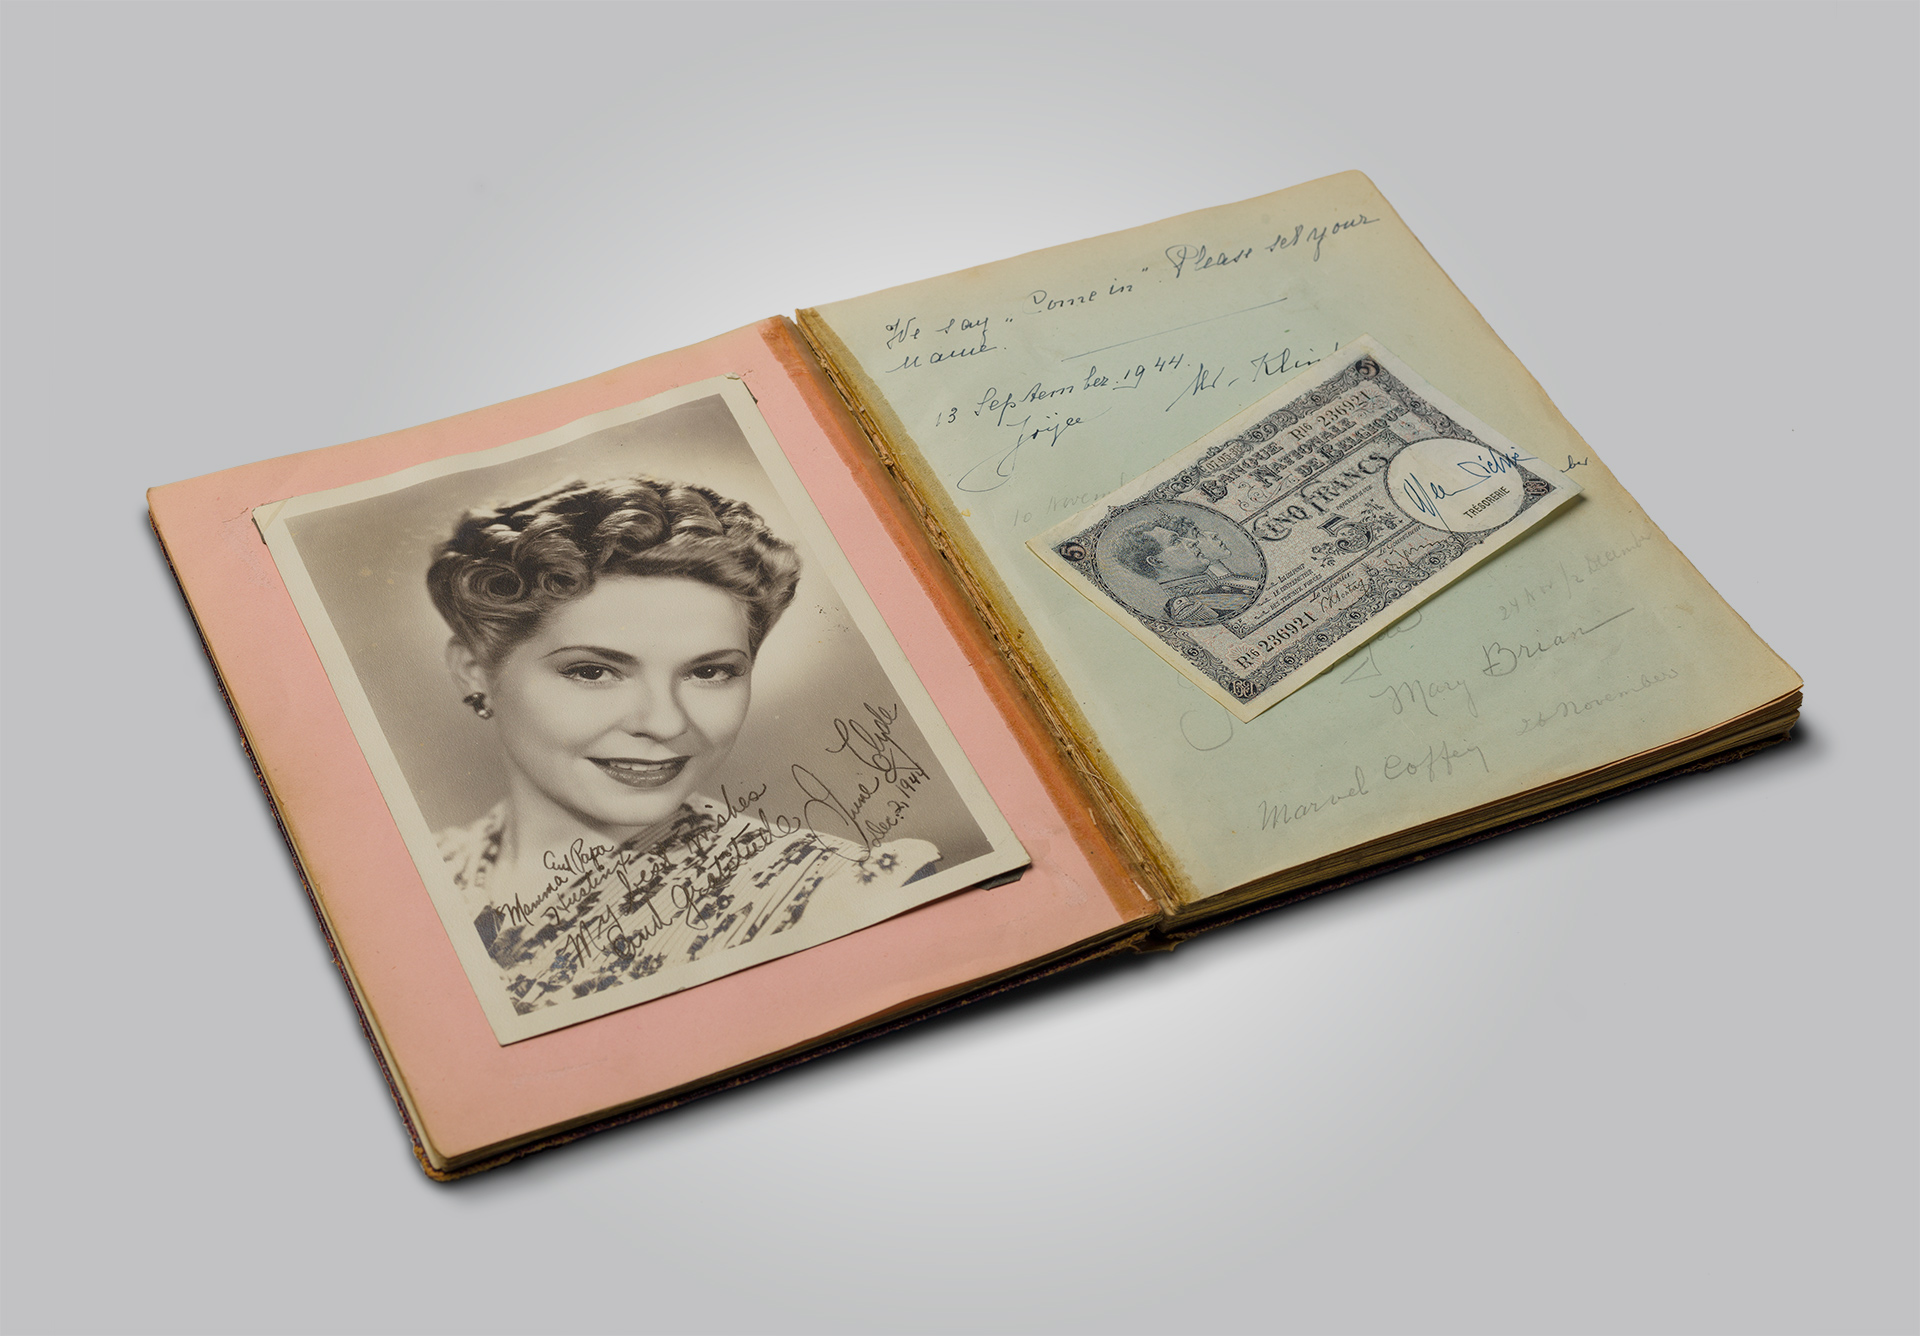 And Papa
Mamma Hustinx
My best wishes
And gratitude
June Clyde
Dec. 2, 1944
We say „Come in" Please set your
name.
13 September 1944.
Joyce
Mr.
10 Novem
BANQUE
NATIONALE
DE BELGIQUE
R16 236921
5
CINQ FRANCS
5
TRÉSORERIE
Le Gouverneur,
Le Trésorier,
R16 236921
ber
24 Nov / 2 December
Mary Brian
Marvel Coffey 26 November